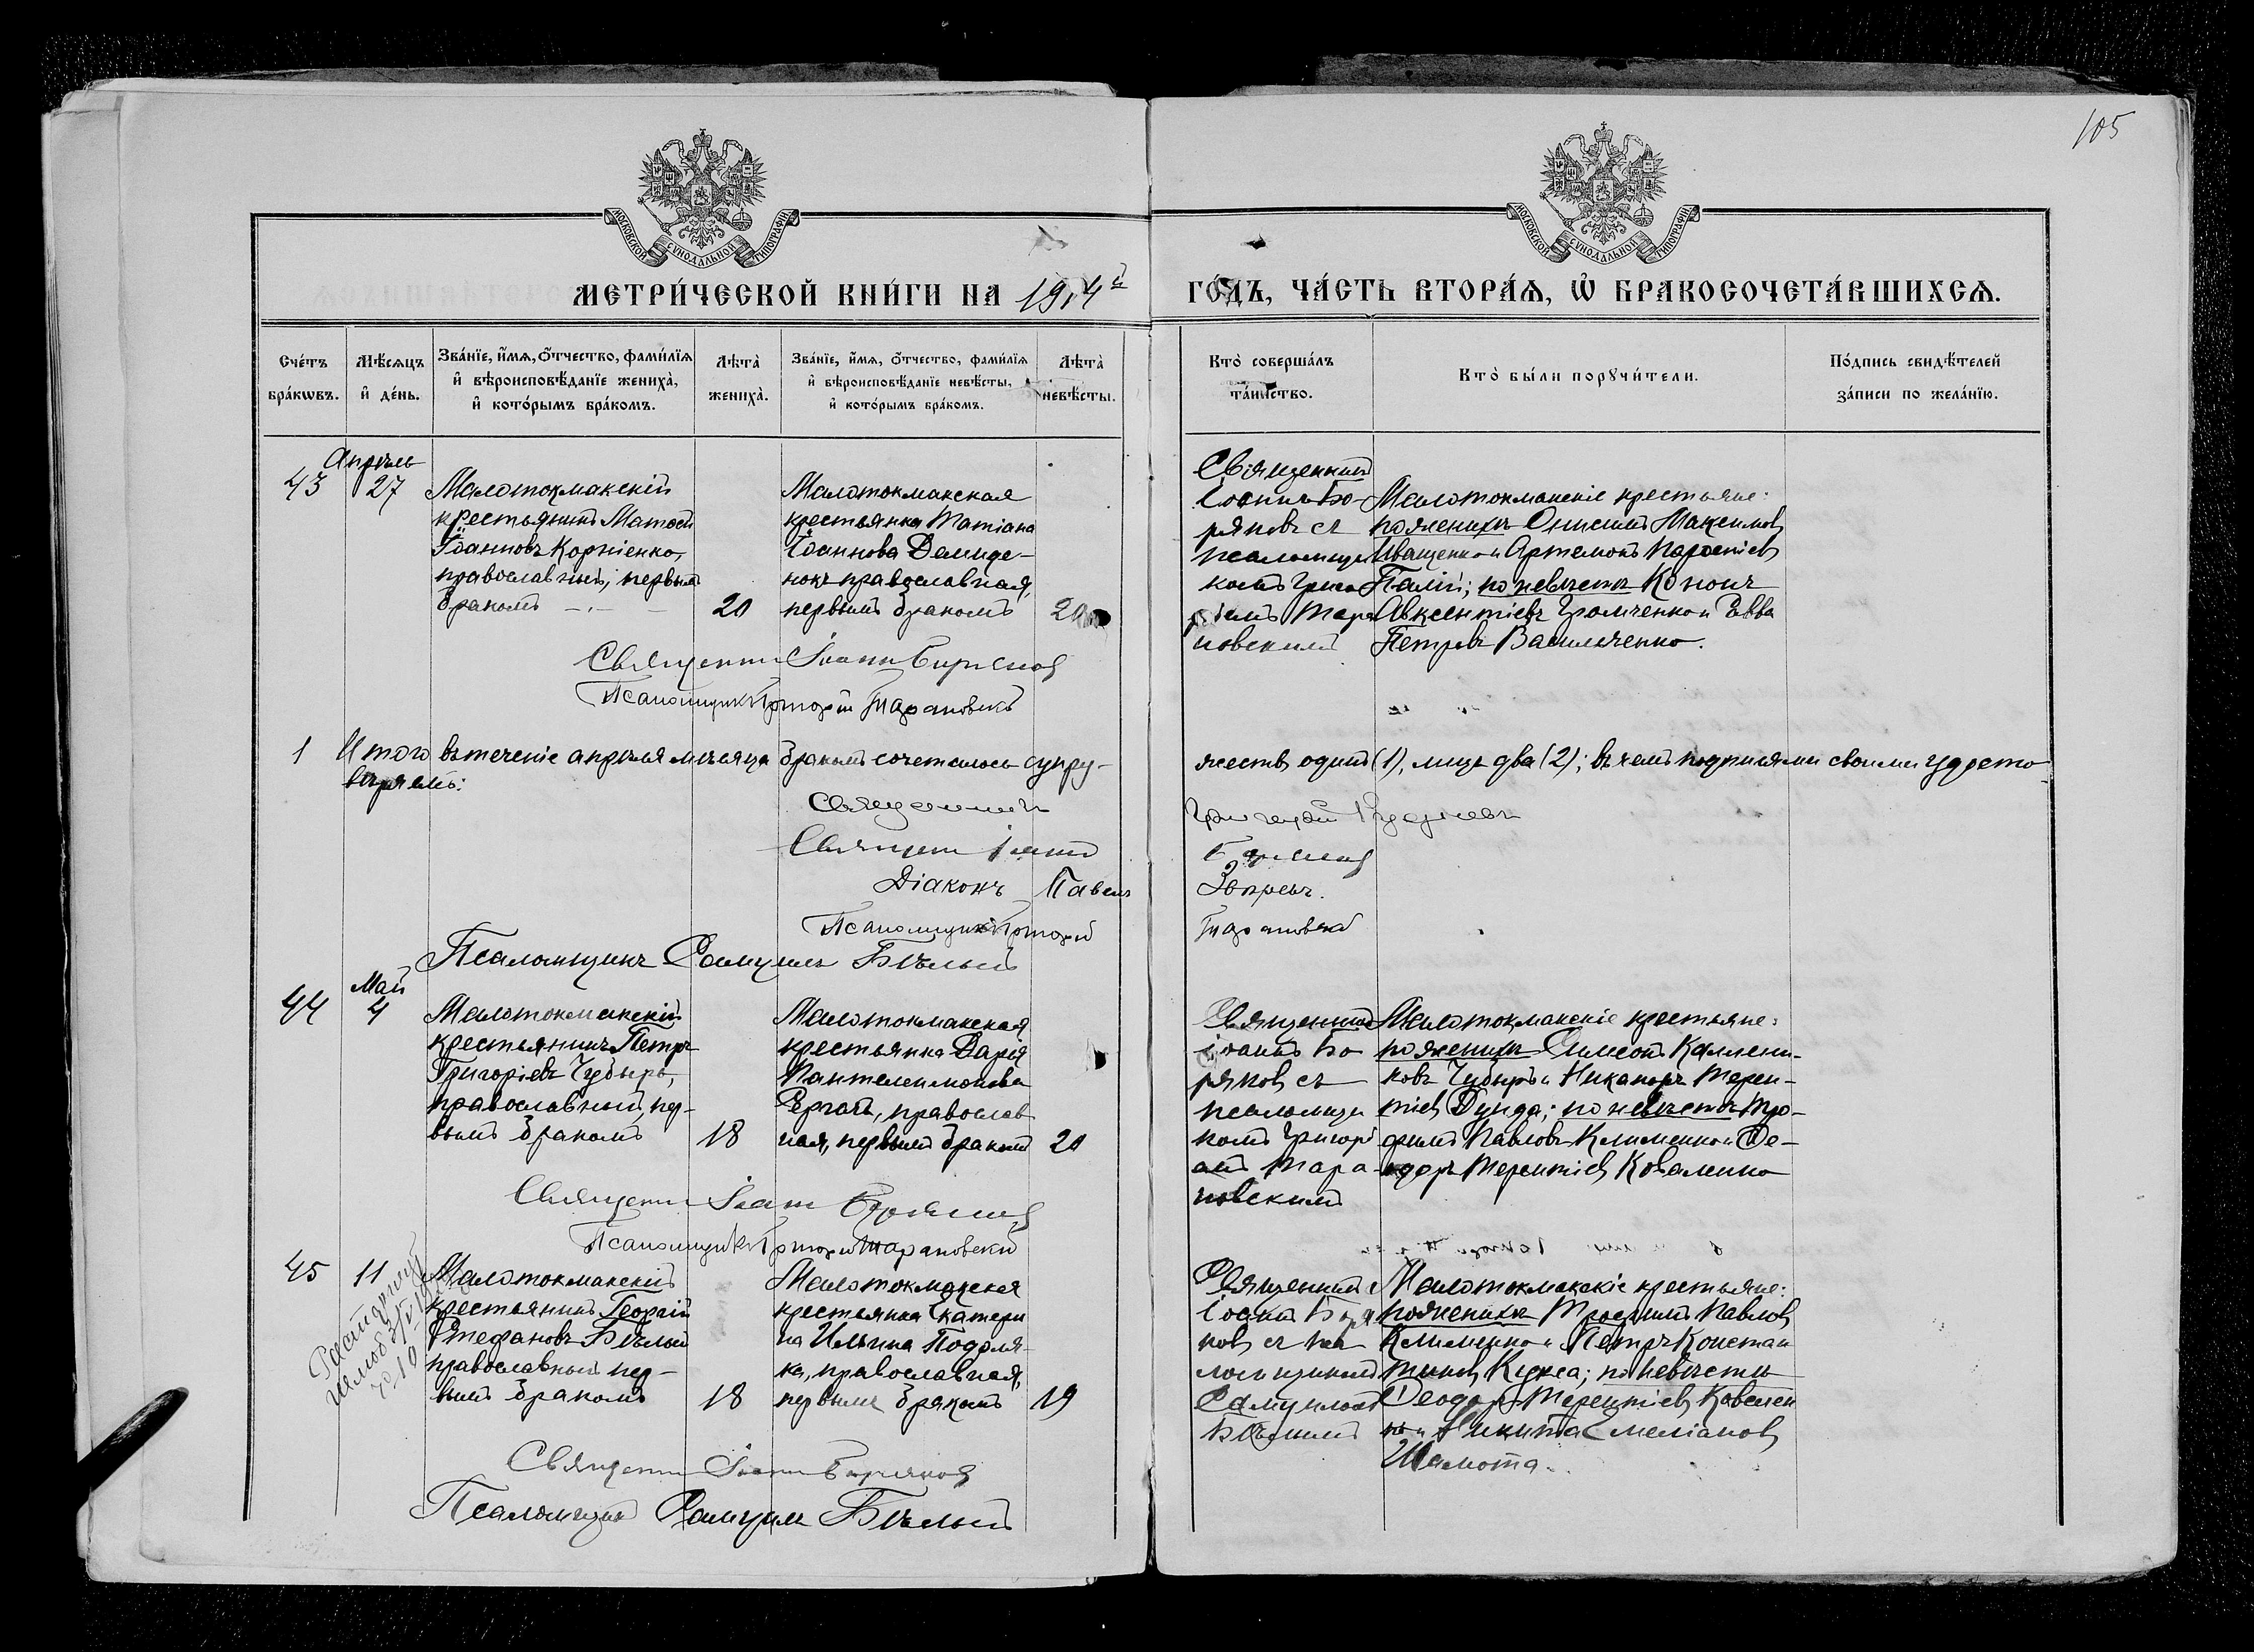 105
МОСКОВСКОЙ СѴНОДАЛЬНОЙ ТИПОГРАФІИ
МОСКОВСКОЙ СѴНОДАЛЬНОЙ ТИПОГРАФІИ
МЕТРИ́ЧЕСКОЙ КНИ́ГИ НА 1914й
ГО́ДЪ, ЧА́СТЬ ВТОРА́Ѧ, Ѡ҆ БРАКОСОЧЕТА́ВШИХСѦ.
Сче́тъ бра́кѡвъ.
Мѣ́сѧцъ и҆ де́нь.
Зва́нїе, и҆́мѧ, ѻ҆́тчество, фами́лїѧ и҆ вѣроисповѣ́данїе жениха̀, и҆ кото́рымъ бра́комъ.
Лѣта̀ жениха̀.
Зва́нїе, и҆́мѧ, ѻ҆́тчество, фами́лїѧ и҆ вѣроисповѣ́данїе невѣ́сты, и҆ кото́рымъ бра́комъ.
Лѣта̀ невѣ́сты.
Кто̀ соверша́лъ та́инство.
Кто̀ бы́ли порꙋчи́тели.
По́дпись свидѣ́телей за́писи по жела́нїю.
Апрѣль
43
27
Малотокмакскій
крестьянинъ
Іоанновъ Корніенко,
православный, первымъ
бракомъ
20
Малотокмакская
крестьянка Татіана
Іоаннова Демиде-
нокъ православная,
первымъ бракомъ
20
Священникъ
Іоаннъ Бо-
ряковъ съ
псаломщи
комъ Григо
ріемъ Тара
новскимъ
Малотокмакскіе крестьяне:
по женихѣ Онисимъ Максимовъ
Иващенко и Артемонъ
Палій; по невѣстѣ Кононъ
Авксентіевъ Громченко и Савва
Петровъ Васильченко.
Священникъ Іоаннъ Боряковъ
Псаломщикъ Григорій Тарановскій
1
Итого въ теченіе апрѣля мѣсяца бракомъ сочеталось супру-
жествъ одинъ (1), лицъ два (2); въ чемъ подписями своими удосто-
вѣряемъ:
Священникъ Григорій
Священникъ Іоаннъ Боряковъ
Діаконъ Павелъ
Псаломщикъ Григорій Тарановскій
Псаломщикъ Самуилъ Бѣлый
Май
44
4
Малотокмакскій
крестьянинъ Петръ
Григоріевъ Чубырь,
православный, пер-
вымъ бракомъ
18
Малотокмакская
крестьянка Дарія
Пантелеимонова
православ
ная, первымъ бракомъ
20
Священникъ
Іоаннъ Бо
ряковъ съ
псаломщи
комъ Григорі
емъ Тара-
новскимъ
Малотокмакскіе крестьяне:
по женихѣ Симеонъ Каллини-
ковъ Чубырь и Никаноръ Терен-
тіевъ Дунда; по невѣстѣ Тро-
фимъ Павловъ Клименко и Ѳе-
одоръ Терентіевъ Коваленко
Священникъ Іоаннъ Боряковъ
Псаломщикъ Григорій Тарановскій
45
11
Малотокмакскій
крестьянинъ Георгій
Стефановъ Бѣлый
православный пер-
вымъ бракомъ
18
Малотокмакская
крестьянка Екатери
на Ильина Подоля-
ка, православная,
первымъ бракомъ
19
Священникъ
Іоаннъ Боря
ковъ съ пса
ломщикомъ
Самуиломъ
Бѣлымъ
Малотокмакскіе крестьяне:
по женихѣ Трофимъ Павловъ
Клименко и Петръ Констан
тиновъ Кукса; по невѣстѣ
Ѳеодоръ Терентіевъ Ковален
ко и Никита Емеліановъ
Шамота.
Священникъ Іоаннъ Боряковъ
Псаломщикъ Самуилъ Бѣлый